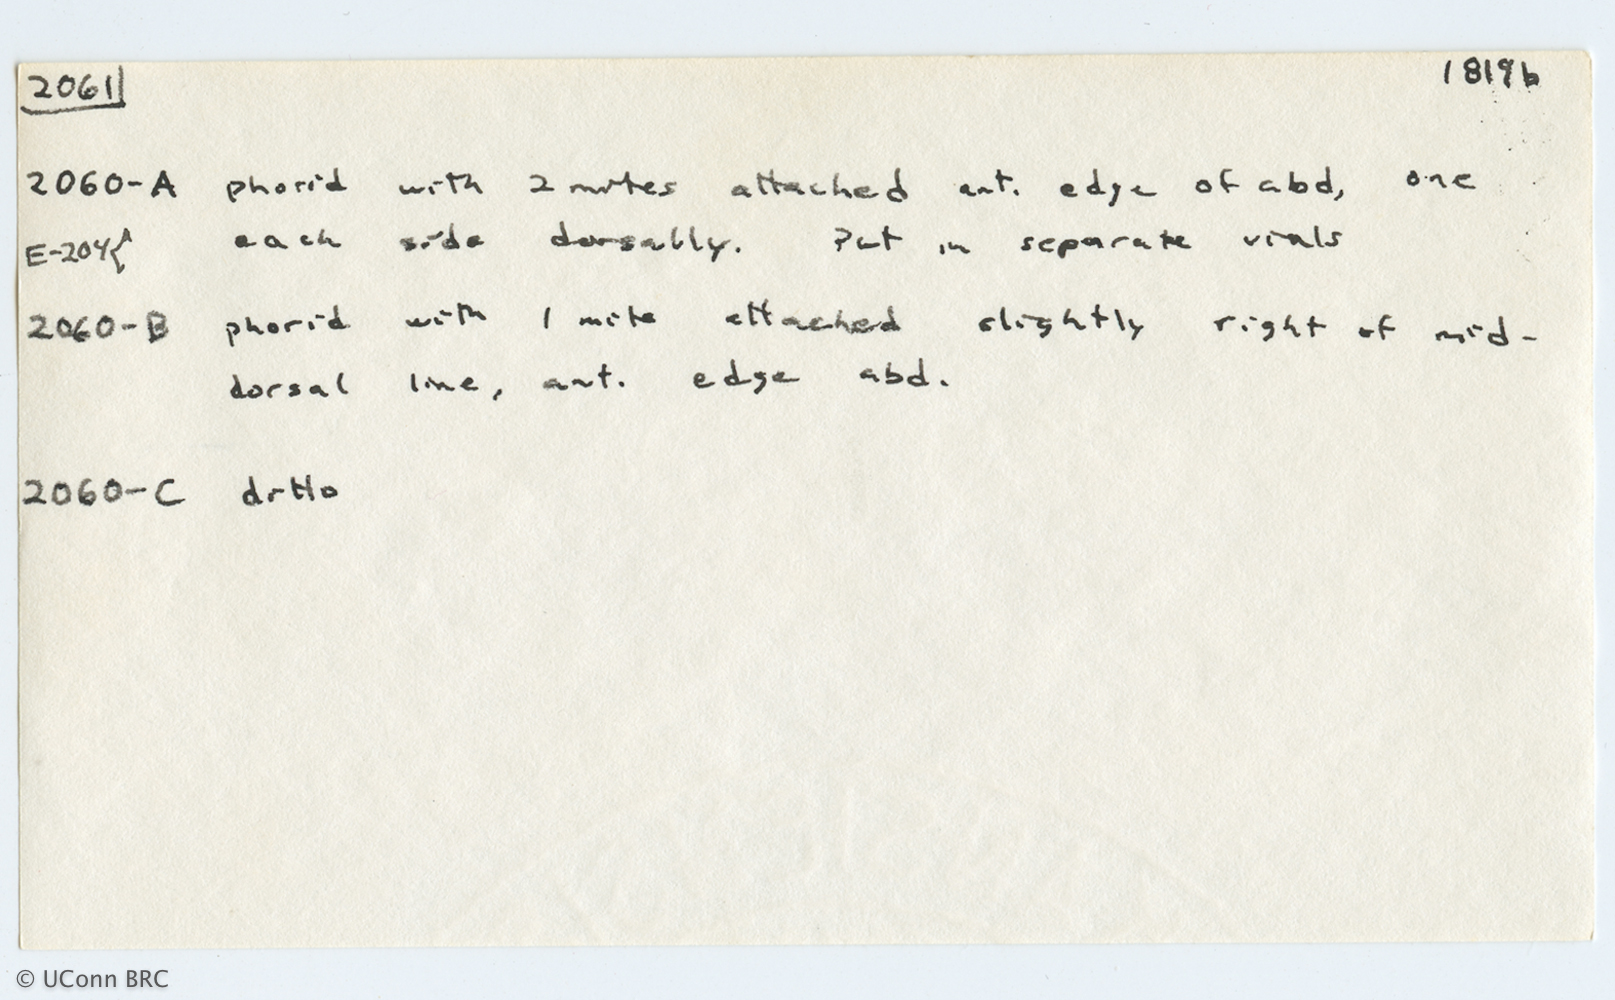 2061 1819b
2060-A phorid with 2 mites attached ant. edge of abd, one
E-204{ each side dorsally. Put in separate vials
2060-B phorid with 1 mite attached slightly right of mid-
dorsal line, ant. edge abd.
2060-C ditto
© UConn BRC